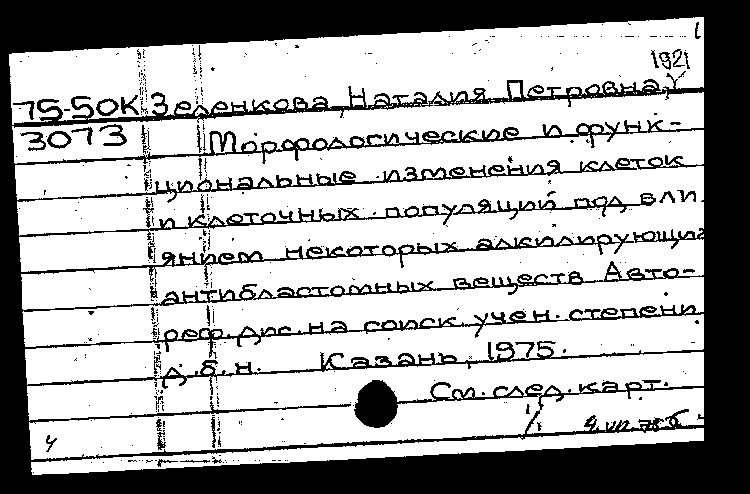 1921
75-50К Зеленкова, Наталия Петровна
3073 Морфологические и функ-
циональные изменения клеток
и клеточных популяций под вли
янием некоторых алкилирующих
антибластомных веществ Авто-
реф. дис. на соиск. учен. степени
д.б.н. Казань, 1975.
См. след. карт.